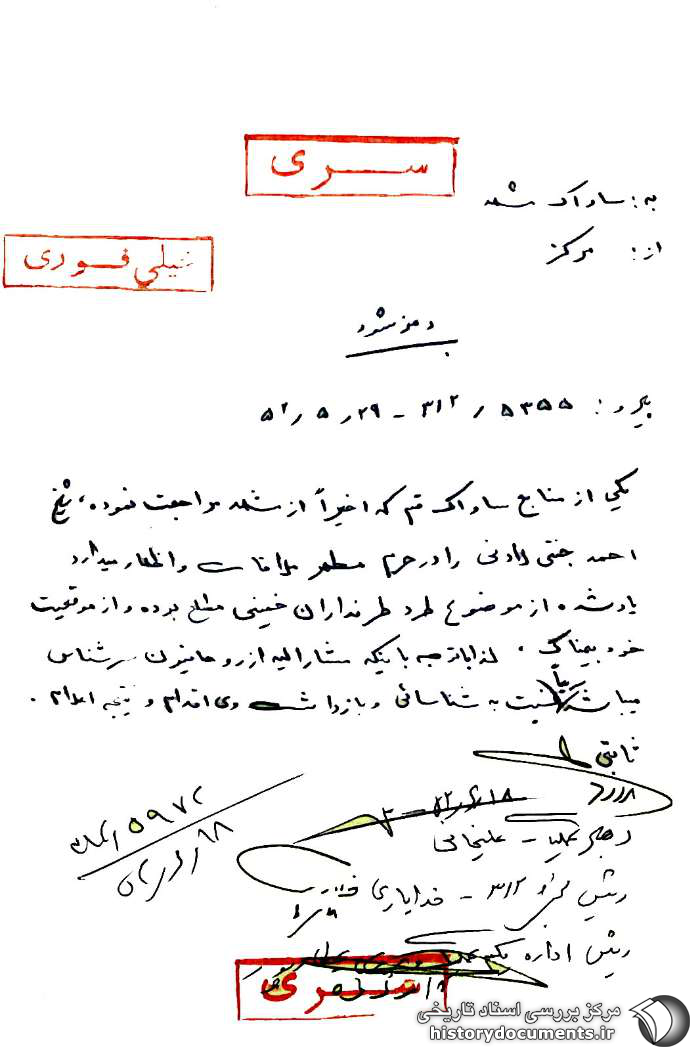 سری
به: ساواک مشهد
خیلی فوری
از: مرکز
رمز شود
پیرو: ۵۳۵۵ / ۳۱۲ - ۲۹ ر ۵ ر ۵۲
یکی از منابع ساواک قم که اخیراً از مشهد مراجعت نموده، شیخ
احمد جنتی لادنی را در حرم مطهر ملاقات و اظهار میدارد
یادشده از موضوع طرد طرفداران خمینی مطلع بوده و از موقعیت
خود بیمناک . لذا باتوجه باینکه مشارالیه از روحانیون سرشناس
میباشد نسبت به شناسائی و بازداشت وی اقدام و نتیجه اعلام .
ثابتی
رهبر عملیات - علیخانی
رئیس بخش ۳۱۲ - خدایاری
رئیس اداره یکم عملیات
سری
مرکز بررسی اسناد تاریخی
historydocuments.ir